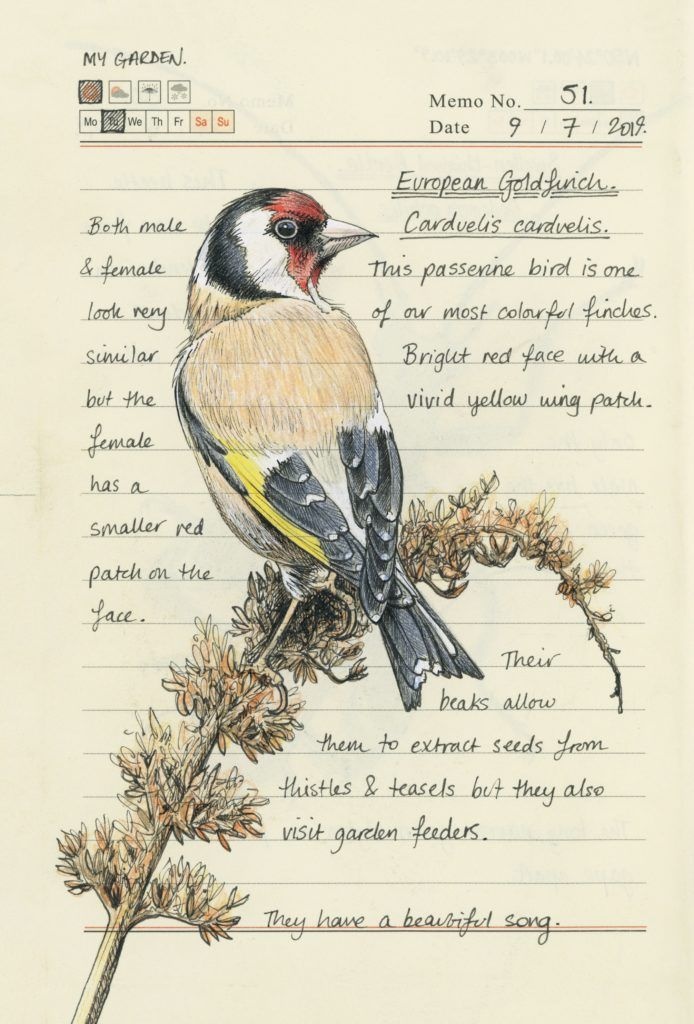 MY GARDEN.
Mo Tu We Th Fr Sa Su
Memo No. 51.
Date 9 / 7 / 2019.
European Goldfinch.
Carduelis carduelis.
Both male
& female
look very
similar
but the
female
has a
smaller red
patch on the
face.
This passerine bird is one
of our most colourful finches.
Bright red face with a
vivid yellow wing patch.
Their
beaks allow
them to extract seeds from
thistles & teasels but they also
visit garden feeders.
They have a beautiful song.